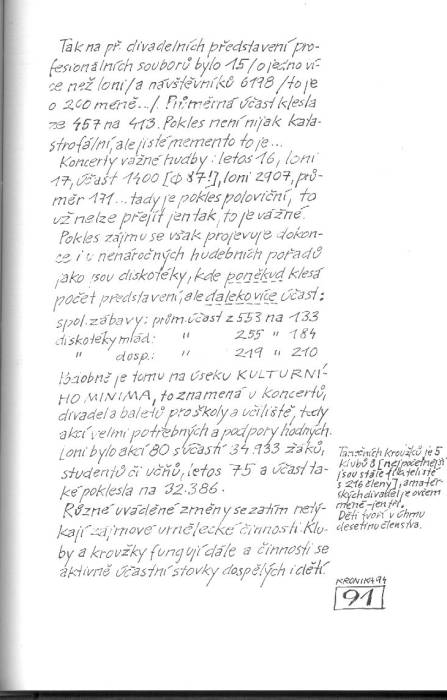 Tak na př. divadelních představení pro-
fesionálních souborů bylo 15/o jedno ví-
ce než loni/a návštěvníků 6198/to je
o 200 méně.../. Průměrná účast klesla
ze 457 na 413. Pokles není nijak kata-
strofální, ale jisté memento to je...
Koncerty vážné hudby: letos 16, loni
17, účast 1400 [φ 87!], loni 2907, prů-
měr 171... tady je pokles poloviční, to
už nelze přejít jen tak, to je vážné.
Pokles zájmu se však projevuje dokon-
ce i u nenáročných hudebních pořadů
jako jsou diskotéky, kde poněkud klesá
počet představení, ale daleko více účast:
spol. zábavy: prům. účast z 553 na 133
diskotéky mlád: " 255 " 184
" dosp.: " 219 " 210
Podobně je tomu na úseku KULTURNÍ-
HO MINIMA, to znamená u koncertů,
divadel a baletů pro školy a učiliště, tedy
akcí velmi potřebných a podpory hodných.
Loni bylo akcí 80 s účastí 34.933 žáků,
studentů či učňů, letos 75 a účast ta-
ké poklesla na 32.386.
Různé uváděné změny se zatím netý-
kají zájmové umělecké činnosti. Klu-
by a kroužky fungují dále a činnosti se
aktivně účastní stovky dospělých i dětí.
Tanečních kroužků je 5
klubů 8 [nejpočetnější
jsou stále filatelisté
s 216 členy], amatér-
ských divadel je ovšem
méně-jen tři.
Děti tvoří v úhrnu
desetinu členstva.
KRONIKA 94
91